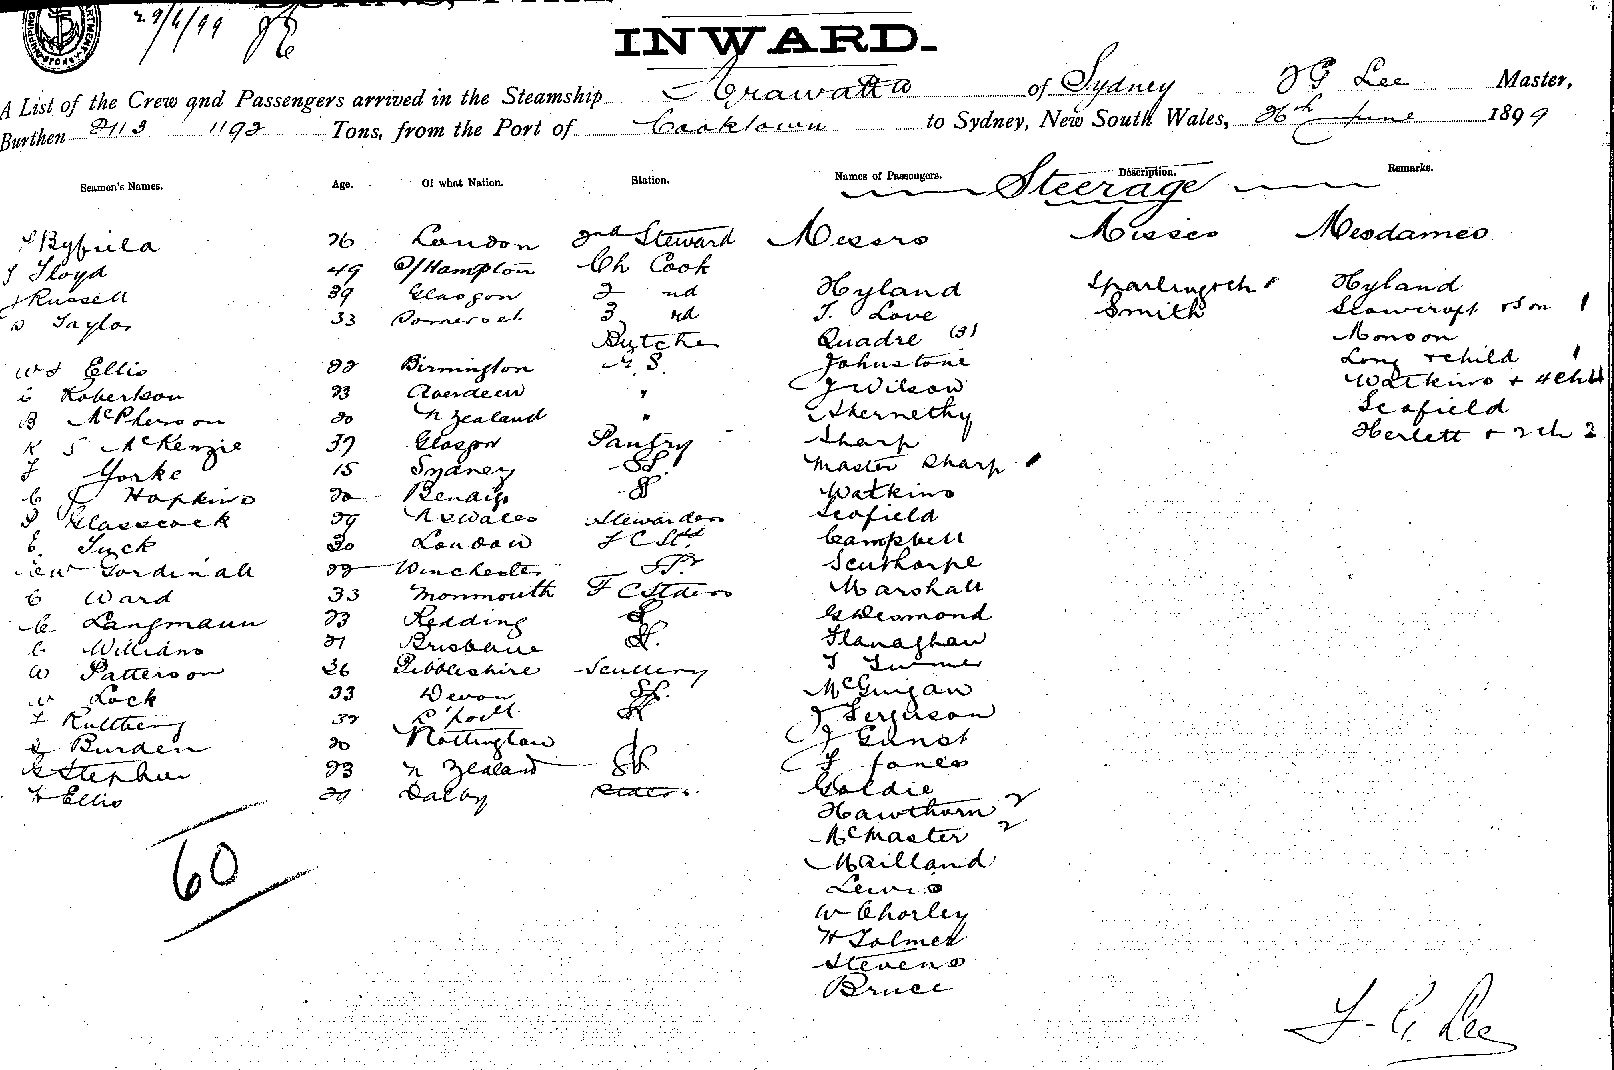 29/6/99
INWARD.
A List of the Crew and Passengers arrived in the Steamship Arawatta of Sydney F G Lee Master,
Burthen 2113 1192 Tons, from the Port of Cooktown to Sydney, New South Wales, 26th June 1899
Seamen's Names. Age. Of what Nation. Station. Names of Passengers. Description. Remarks.
Steerage
Byfield 26 London 2nd Steward Messrs Misses Mesdames
Lloyd 49 S/Hampton Ch Cook
Russell 39 Glasgow 2 nd Hyland Hyland
Taylor 33 Somerset 3 rd T. Love Smith + Son 1
Butcher Quadre (3) Monson
W J Ellis 22 Birmington G. S. Johnstone Long + child 1
Robertson 23 Aberdeen " J Wilson Watkins + 4 Ch 4
B McPherson 20 N Zealand " Abernethy Scofield
K S McKenzie 37 Glasgow Pantry Sharp Herlett + 2 ch 2
Yorke 15 Sydney Master Sharp 1
C J Hopkins 20 Bendigo Watkins
Glasscock 29 N S Wales Stewardess Scofield
E. Tuck 30 London F C Std Campbell
Gordinall 22 Winchester Scuthorpe
C Ward 33 Monmouth F C Stdess Marshall
C Langmann 23 Redding G Desmond
C Williams 21 Brisbane Flanaghan
W Patterson 26 Pibbleshire Scullery T Turner
W Lock 33 Devon McGuigan
32 L'pool J Ferguson
Burden 20 Nottington J Gunst
G Stephen 23 N Zealand J Jones
H Ellis 29 Dalby Goldie
Hawthorn 2
McMaster 2
60
Mailland
Lewis
W Chorley
H Tolmer
Stevens
Bruce
F. G. Lee